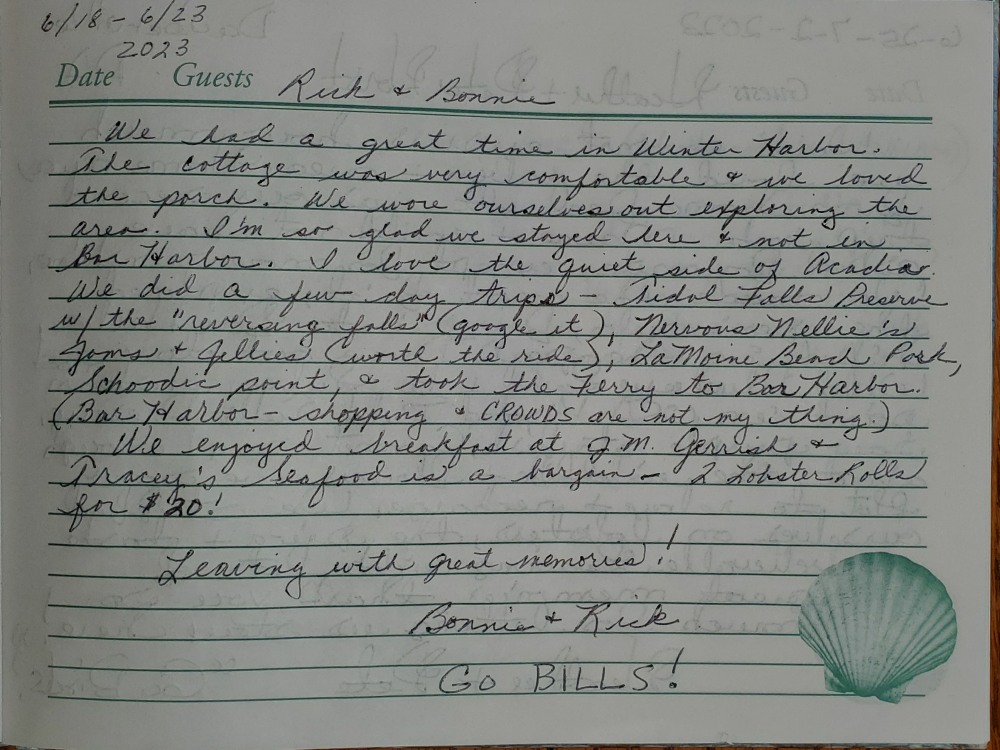 6/18 - 6/23
2023
Date Guests Rick & Bonnie
We had a great time in Winter Harbor.
The cottage was very comfortable & we loved
the porch. We wore ourselves out exploring the
area. I'm so glad we stayed here & not in
Bar Harbor. I love the quiet side of Acadia.
We did a few day trips - Tidal Falls Preserve
w/ the "reversing falls" (google it), Nervous Nellie's
Jams & Jellies (worth the ride), LaMoine Beach Park,
Schoodic point, & took the Ferry to Bar Harbor.
(Bar Harbor - shopping & CROWDS are not my thing.)
We enjoyed breakfast at J.M. Gerrish &
Tracey's Seafood is a bargain - 2 Lobster Rolls
for $20!
Leaving with great memories!
Bonnie & Rick
GO BILLS!